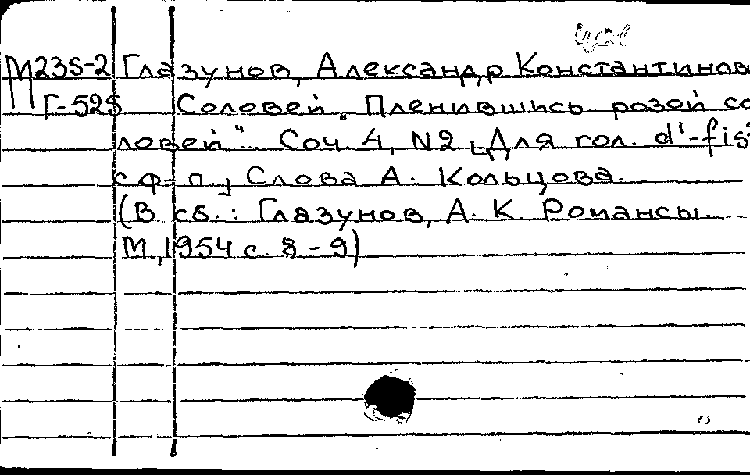 М235-2 Глазунов, Александр Константинов
Г-525 Соловей „Пленившись розой со
ловей" Соч 4, N2, Для гол. d'-fis
с ф-п., Слова А. Кольцова.
(В сб.: Глазунов, А. К. Романсы
М., 1954 с. 8-9)